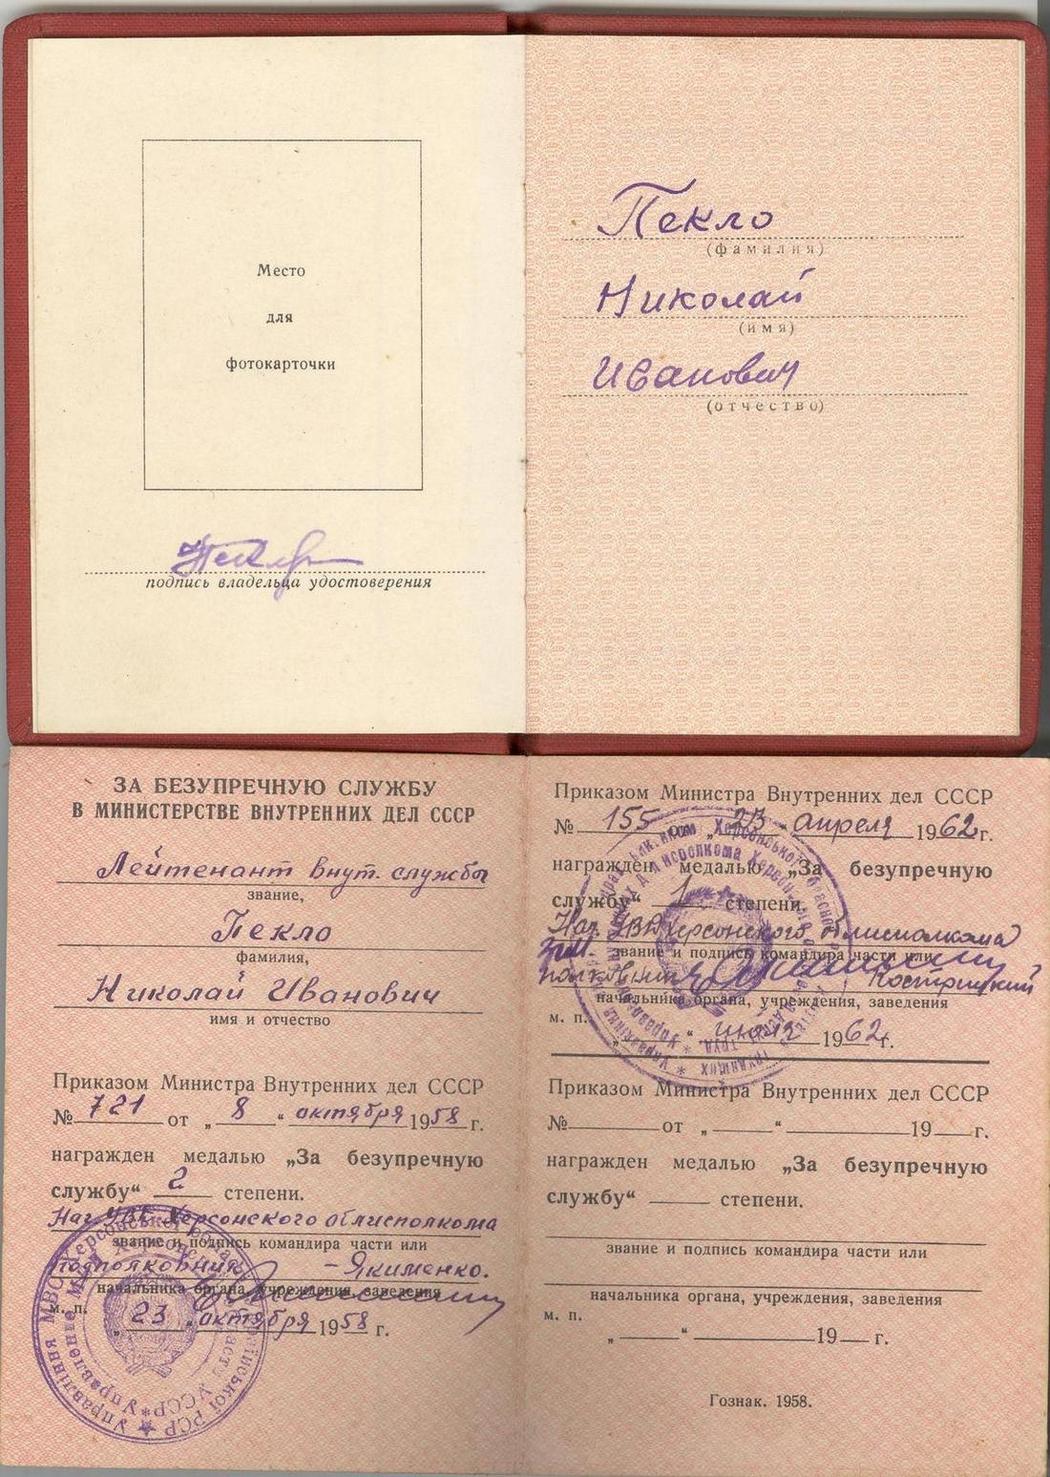 Место
для
фотокарточки
подпись владельца удостоверения
Пекло
(фамилия)
Николай
(имя)
Иванович
(отчество)
ЗА БЕЗУПРЕЧНУЮ СЛУЖБУ
В МИНИСТЕРСТВЕ ВНУТРЕННИХ ДЕЛ СССР
Лейтенант внут. службы
звание,
Пекло
фамилия,
Николай Иванович
имя и отчество
Приказом Министра Внутренних дел СССР
№ 721 от „ 8 “ октября 1958 г.
награжден медалью „За безупречную
службу“ 2 степени.
Нач. УВД Херсонского облисполкома
звание и подпись командира части или
подполковник - Якименко.
начальника органа, учреждения, заведения
м. п.
„ 23 “ октября 1958 г.
Приказом Министра Внутренних дел СССР
№ 155 от „ 23 “ апреля 1962 г.
награжден медалью „За безупречную
службу“ 1 степени.
Нач. УВД Херсонского облисполкома
звание и подпись командира части или
полковник Кострицкий
начальника органа, учреждения, заведения
м. п.
„ “ июля 1962 г.
Приказом Министра Внутренних дел СССР
№ от „ “ 19 г.
награжден медалью „За безупречную
службу“ степени.
звание и подпись командира части или
начальника органа, учреждения, заведения
м. п.
„ “ 19 г.
Гознак. 1958.